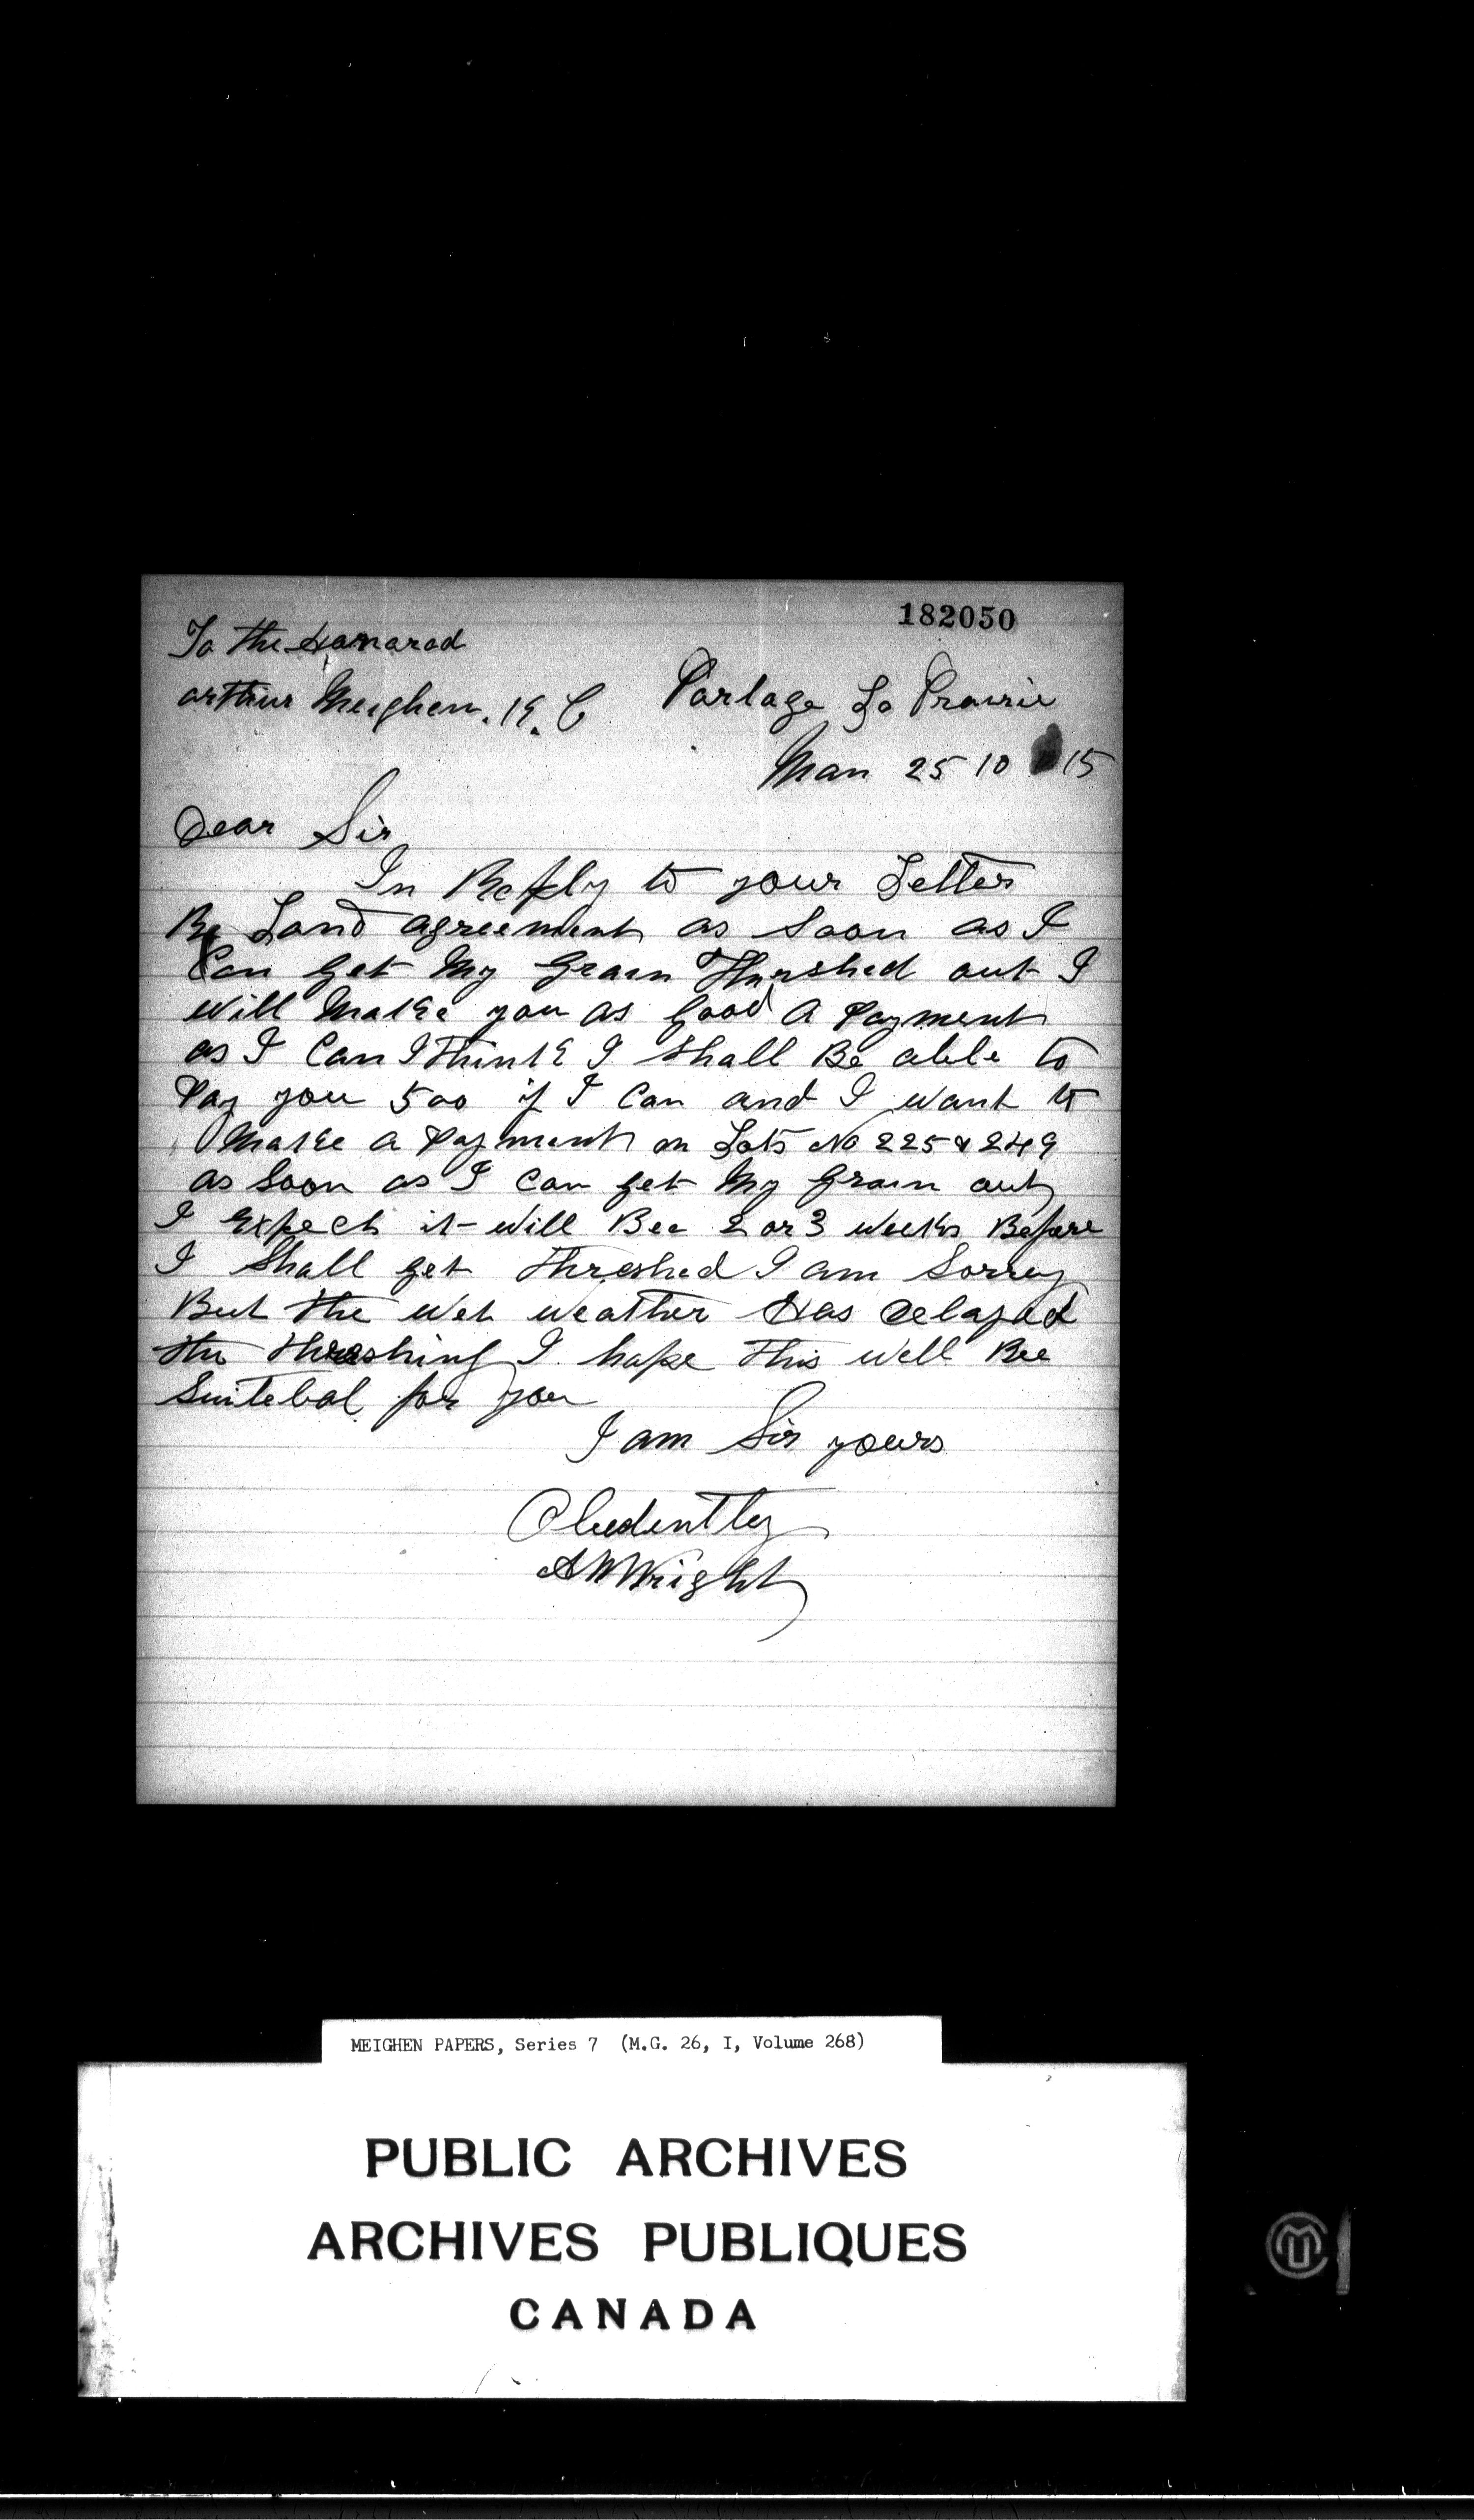 182050
To the Honarad
arthur Meighen. K. C
Portage La Prairie
Man 25 10 15
Dear Sir
In Reply to your Letter
Re Land agreement as soon as I
Can get My Grain Thrashed out I
will Make you as good a Payment
as I Can I Think I shall Be able to
Pay you 500 if I Can and I want to
Make a Payment on Lots No 225 & 249
as Soon as I can get My grain out
I Expect it will Bee 2 or 3 weeks Before
I Shall get Threshed I am Sorrey
But the wet weather Has Delayed
the thrashing I hope this will Bee
Suitebal for you
I am Sir yours
Obedently
A W Wright
MEIGHEN PAPERS, Series 7 (M.G. 26, I, Volume 268)
PUBLIC ARCHIVES
ARCHIVES PUBLIQUES
CANADA